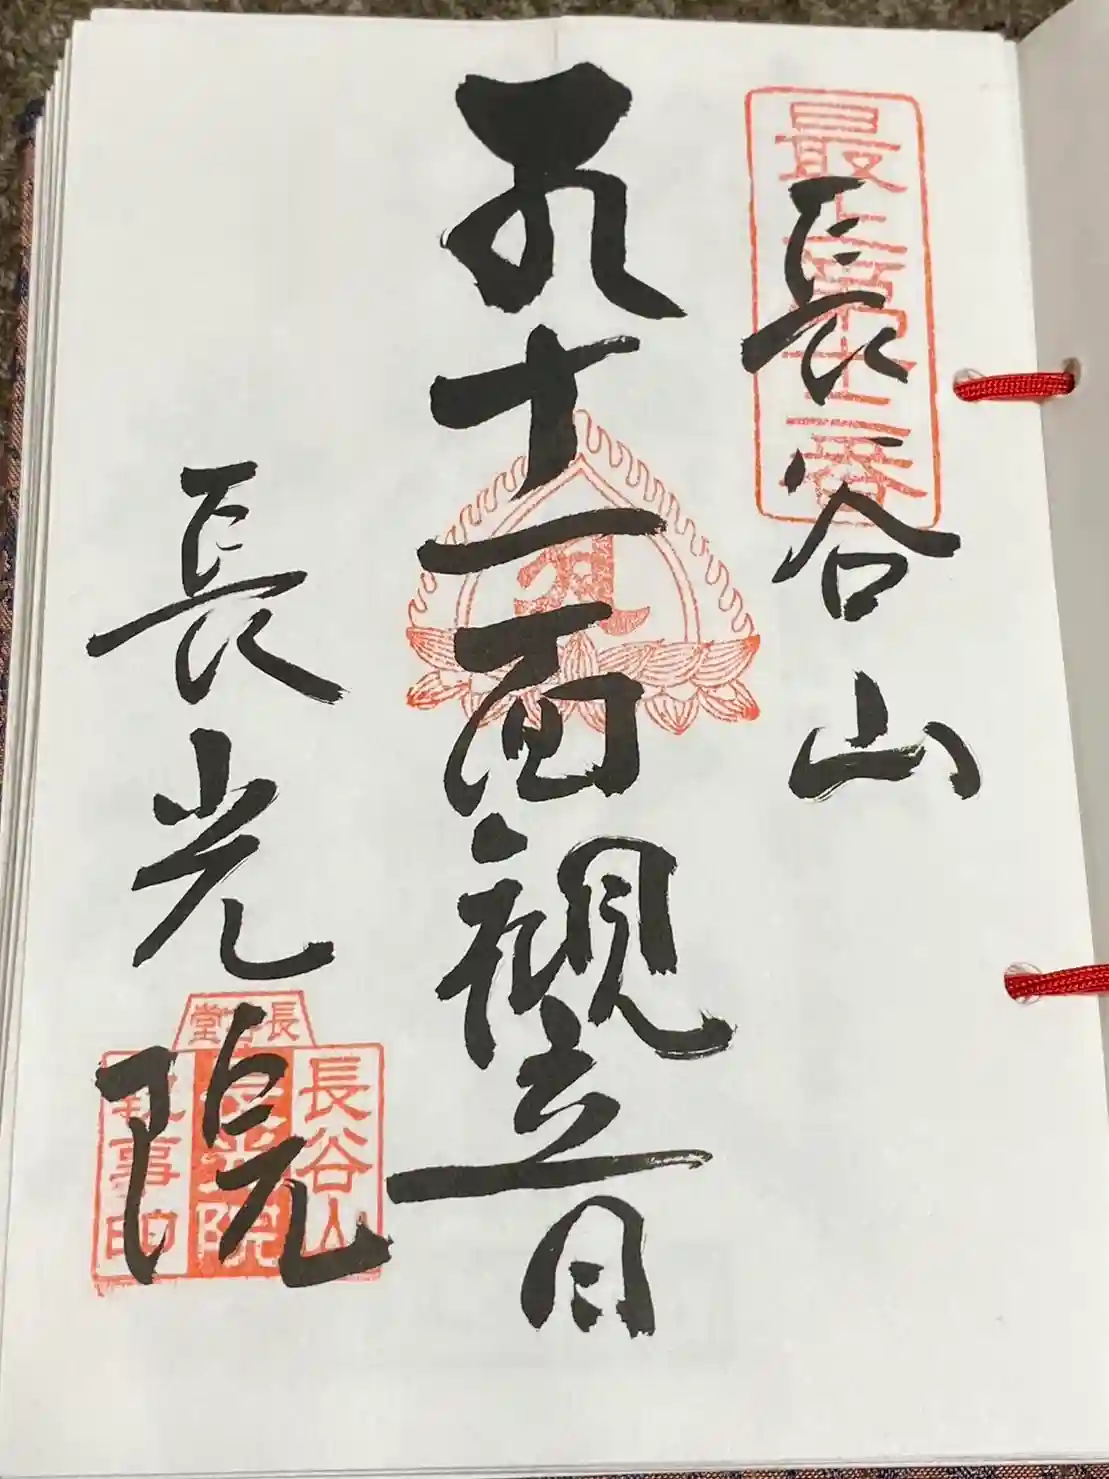 最上第十二番
長谷山
十一面観音
長光院
長谷堂
長谷山
長光院
執事印